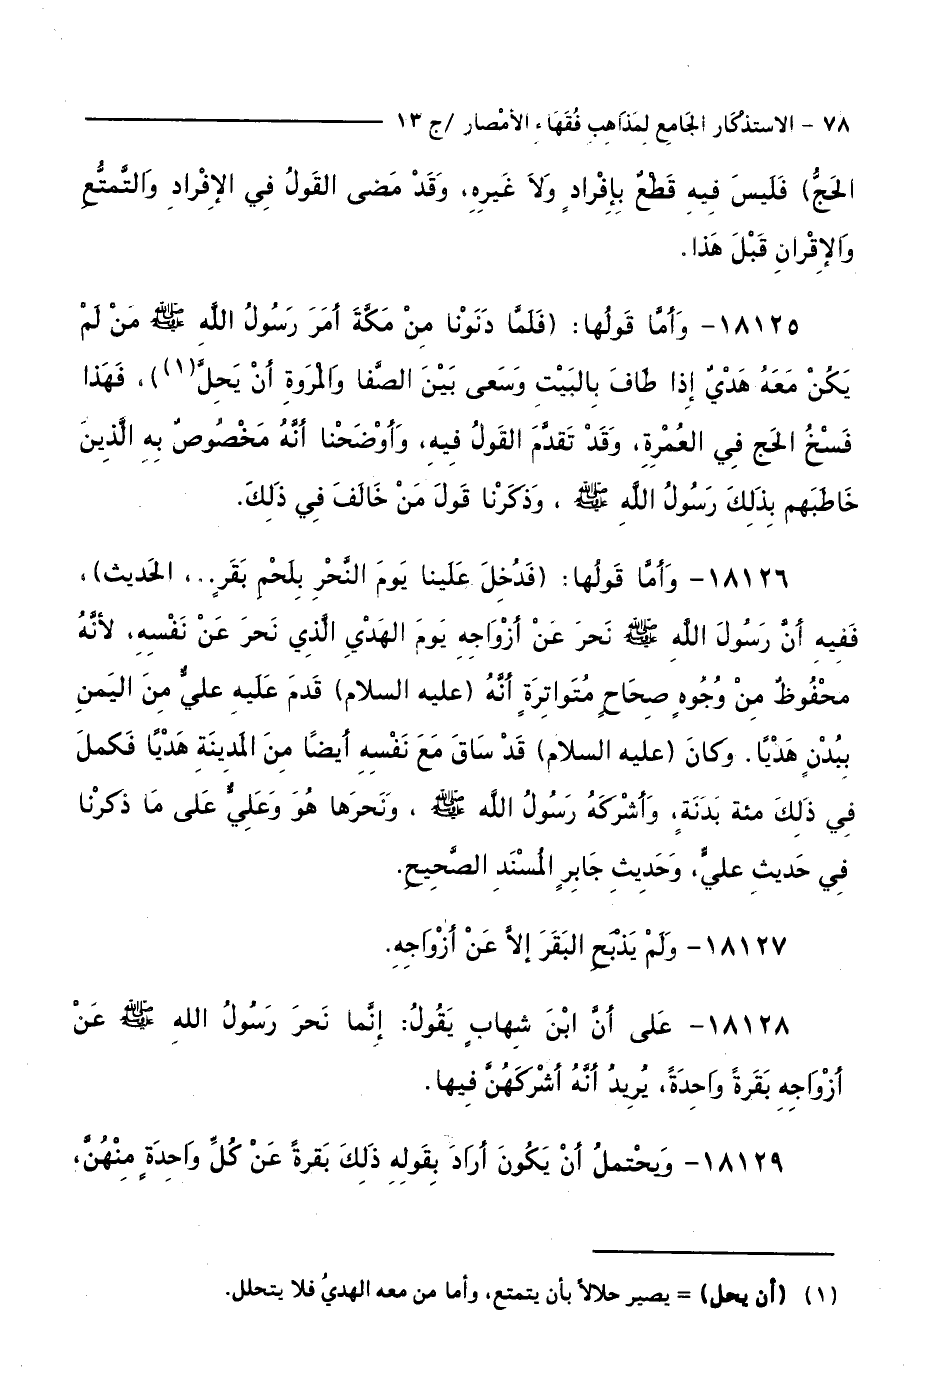 ٧٨ - الاستذْكَار الجَامع لِمَذاهِبِ فُقَهَاءِ الأمْصار /ج ١٣
الحَجُّ) فَلَيسَ فِيهِ قَطْعٌ بِإِفْرادٍ وَلاَ غَيرِهِ، وَقَدْ مَضى القَولُ فِي الإفْرادِ وَالتَّمتُّعِ
وَالإقْرانِ قَبْلَ هَذا.
١٨١٢٥- وَأمَّا قَولُها: (فَلَمَّا دَنَوْنا مِنْ مَكَّةَ أمَرَ رَسُولُ اللَّهِ ﷺ مَنْ لَمْ
يَكُنْ مَعَهُ هَدْيٌ إذا طَافَ بِالبَيْتِ وَسَعى بَيْنَ الصَّفا وَالْمَروَةِ أنْ يَحلَّ(١))، فَهَذا
فَسْخُ الحَج فِي العُمْرةِ، وَقَدْ تَقدَّمَ القَولُ فيهِ، وَأوْضَحْنا أنَّهُ مَخْصُوصٌ بِهِ الَّذِينَ
خَاطَبَهم بِذلِكَ رَسُولُ اللَّهِ ﷺ ، وَذكَرْنا قَولَ مَنْ خَالَفَ فِي ذلِكَ.
١٨١٢٦- وَأمَّا قَولُها: (فَدُخِلَ عَلَينا يَومَ النَّحْرِ بِلَحْمِ بَقَرٍ...، الحَديث)،
فَفيهِ أنَّ رَسُولَ اللَّهِ ﷺ نَحرَ عَنْ أزْوَاجِهِ يَومَ الهَدْيِ الَّذي نَحرَ عَنْ نَفْسِهِ، لأنَّهُ
محْفُوظٌ مِنْ وُجُوهٍ صِحَاحٍ مُتَواتِرَةٍ أنَّهُ (عليه السلام) قَدمَ عَلَيهِ عليٌّ مِنَ اليَمنِ
بِبُدْنٍ هَدْيًا. وَكانَ (عليه السلام) قَدْ سَاقَ مَعَ نَفْسِهِ أيضًا مِنَ الْمَدينَةِ هَدْيًا فَكملَ
فِي ذَلِكَ مئة بَدَنَةٍ، وَأشْركَهُ رَسُولُ اللَّهِ ﷺ ، وَنَحرَها هُوَ وَعَليٌّ عَلى مَا ذكرْنا
فِي حَديثِ عليٍّ، وَحَديثِ جَابِرٍ الْمُسْنَدِ الصَّحيحِ.
١٨١٢٧- وَلَمْ يَذْبَحِ البَقَرَ إلاَّ عَنْ أزْوَاجِهِ.
١٨١٢٨- عَلى أنَّ ابْنَ شِهابٍ يَقُولُ: إنَّما نَحرَ رَسُولُ اللهِ ﷺ عَنْ
أزْوَاجِهِ بَقَرةً وَاحدَةً، يُرِيدُ أنَّهُ أشْركَهُنَّ فِيها.
١٨١٢٩- وَيحْتملُ أنْ يَكُونَ أرَادَ بِقَولِهِ ذلِكَ بَقرةً عَنْ كُلِّ وَاحِدَةٍ مِنْهُنَّ،
(١) (أن يحل) = يصير حلالاً بأن يتمتع، وأما من معه الهديُ فلا يتحلل.